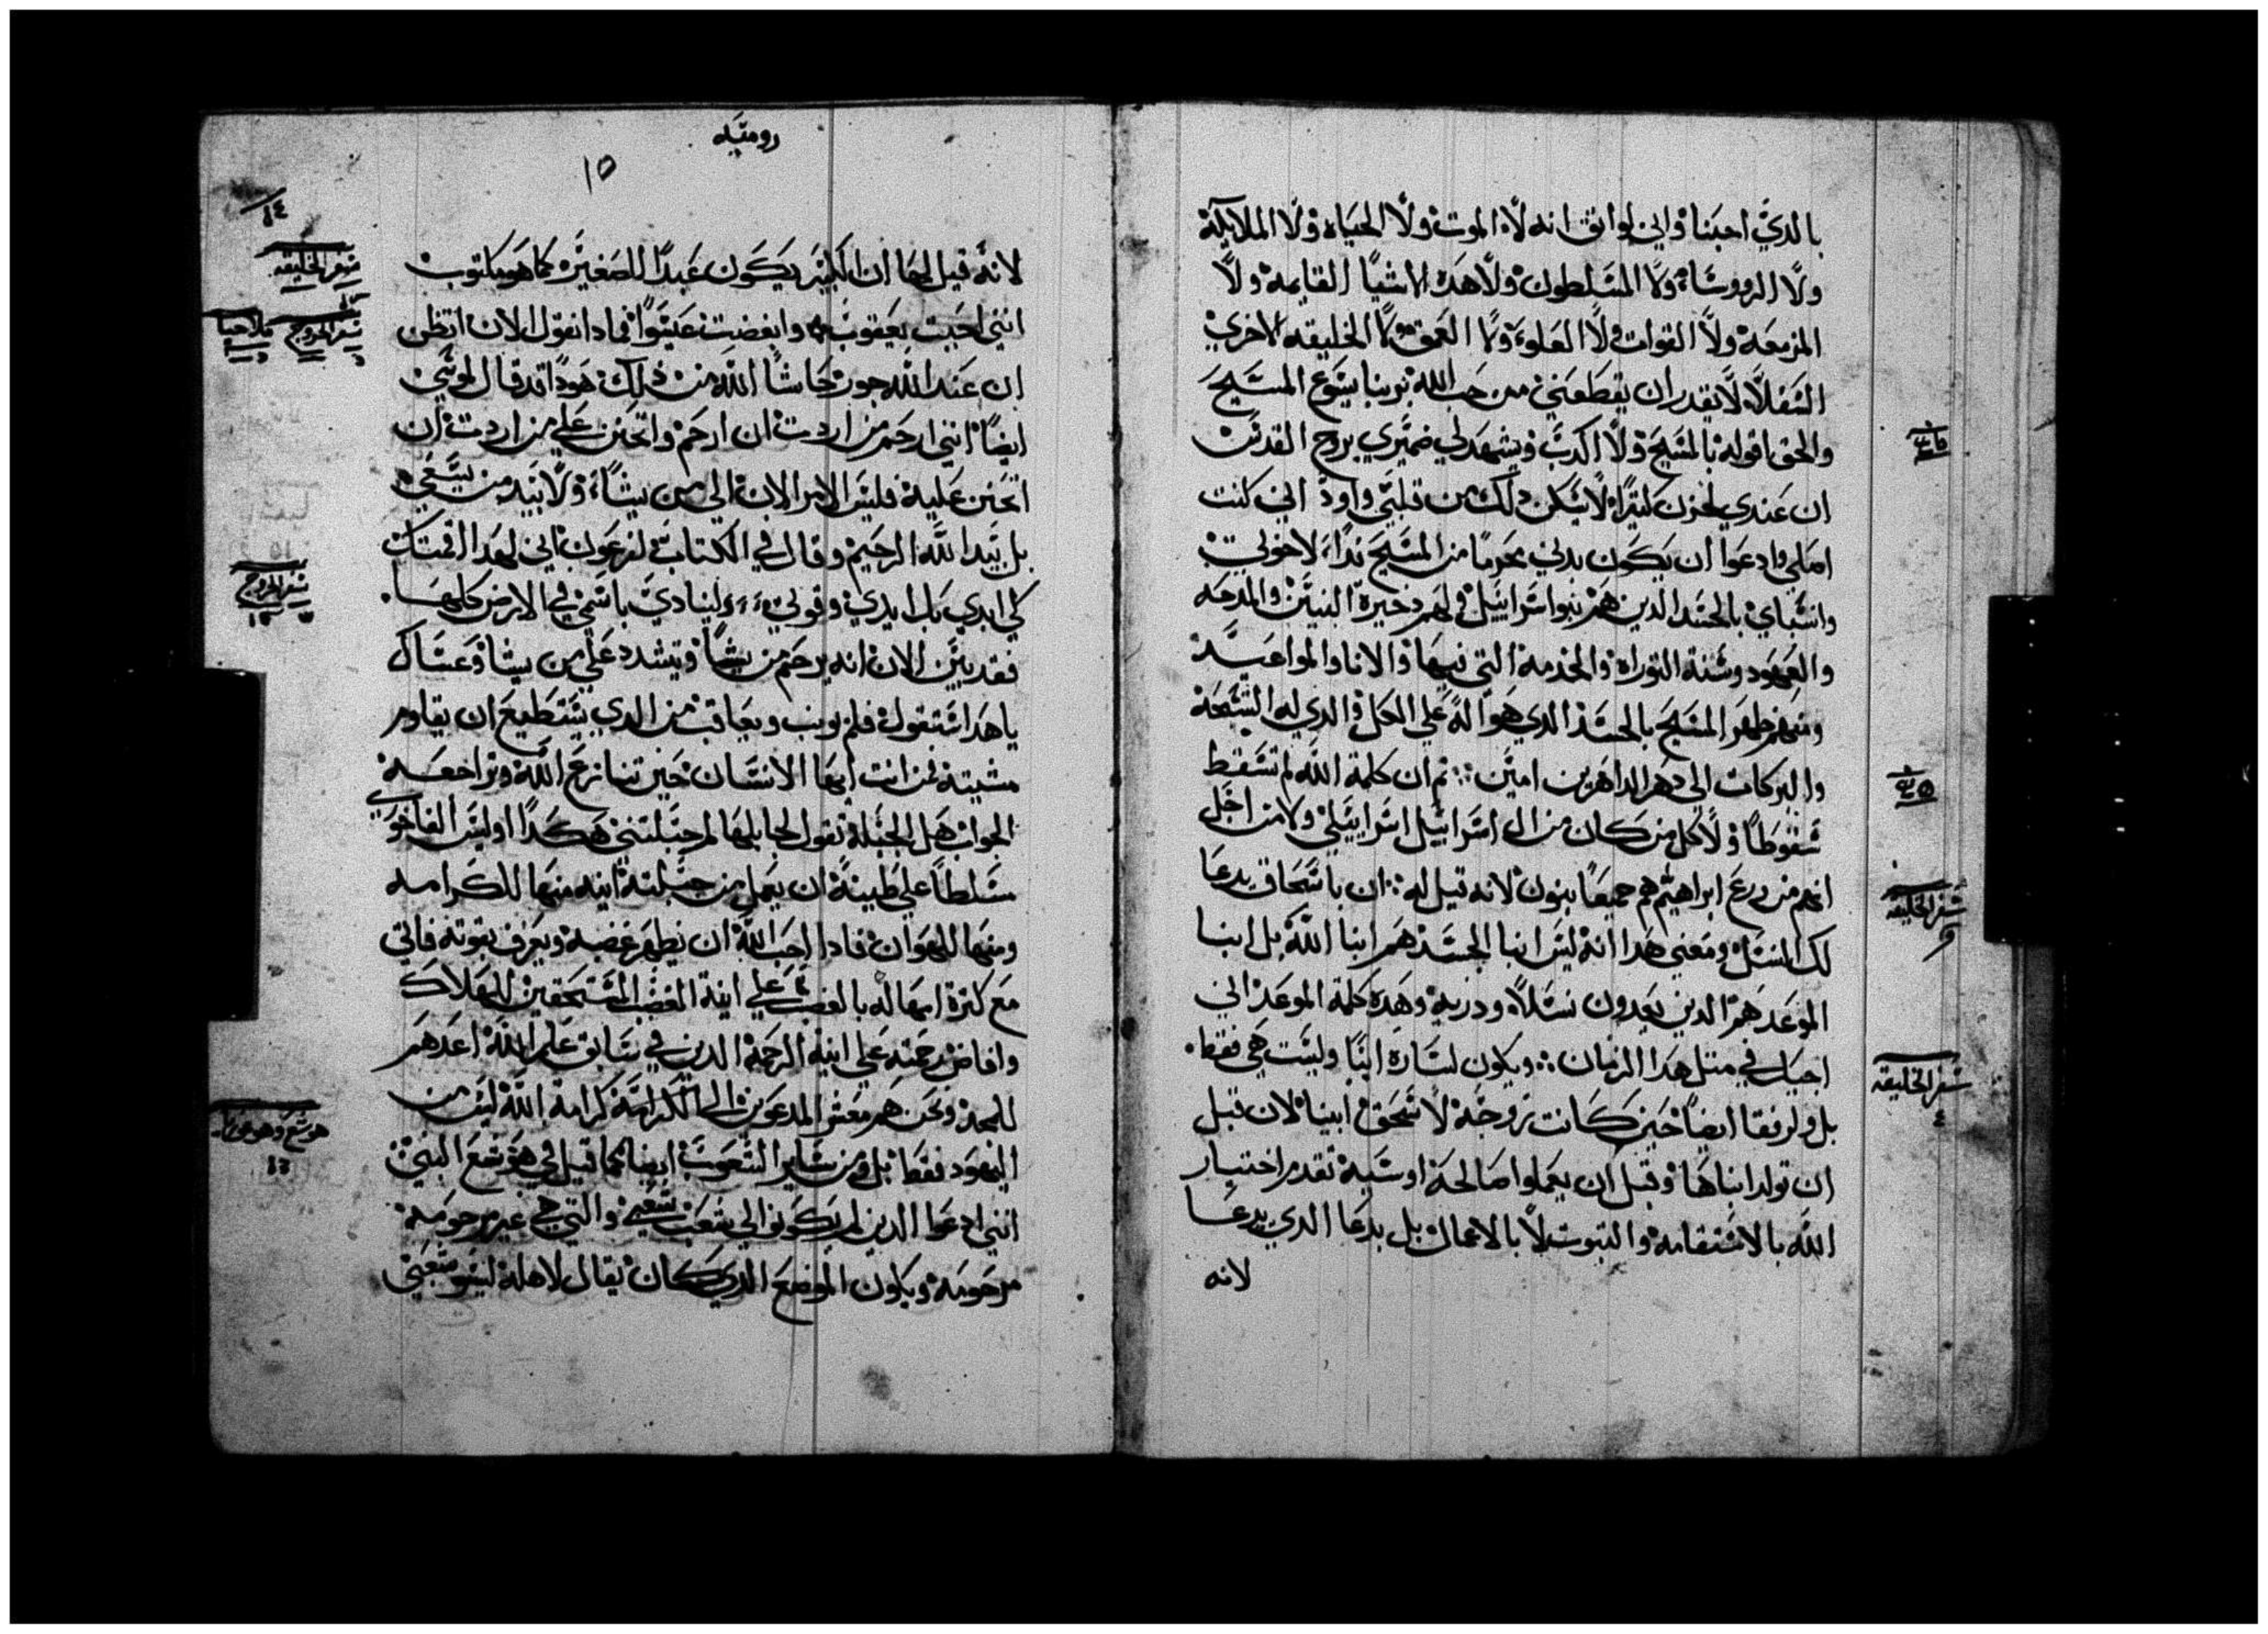 بالدي احبنا واني لواثق انه لا الموت ولا الحياه ولا الملايكة
ولا الرووسا ولا المسلطون ولا هده الاشيا القايمة ولا
المزمعة ولا القوات ولا العلو ولا العمق ولا الخليقه الاخري
السفلا لا يقدر ان يقطعني من حب الله بربنا يسوع المسيح
والحق اقوله بالمسيح ولا اكدب ويشهد لي ضميري بروح القدس
ان عندي لحزن كتيرا لا يسكن دلك من قلبي واود اني كنت
اصلي وادعوا ان يكون بدني محرما من المسيح فدا لاخوتي
وانسباي بالجسد الدين هم بنوا اسراييل ولهم دخيرة البنين والمدحه
والعهود وسنة التوراة والخدمة التي فيها والابا والمواعيد
ومنهم ظهر المسيح بالجسد الدي هو اله علي الكل والدي له التسبحة
والبركات الي دهر الداهرين امين ؞ ثم ان كلمة الله لم تسقط
سقوطا ولا كل من كان من ال اسراييل اسراييلي ولا من اجل
انهم من زرع ابراهيم هم جميعا بنون لانه قيل له ؞ ان باسحاق يدعا
لك النسل ومعني هدا انه ليس ابنا الجسد هم ابنا الله بل ابنا
الموعد هم الدين يعدون نسلا ودرية وهده كلمة الموعد اني
اجيك في مثل هدا الزمان ؞ ويكون لسارة ابنا وليست هي فقط
بل ولرفقا ايضا حين كانت زوجة لاسحق ابينا لان قبل
ان تولد ابناها وقبل ان يعملوا صالحة او سية تقدم اختيار
الله بالاستقامة والتبوت لا بالاعمال بل بدعا الدي يدعا
لانه
٤٥
سفر الخليقه
٩
سفر الخليقه
٤
روميه
١٥
لانه قيل لها ان الكبير يكون عبدا للصغير كما هو مكتوب
انني احبيت يعقوب وابغضت عيسوا فمادا نقول الان اتظن
ان عند الله جور حاشا الله من دلك هودا قد قال لموسي
ايضا انني ارحم من اردت ان ارحم واتحنن علي من اردت ان
اتحنن عليه فليس الامر الان الي من يشا ولا بيد من يسعي
بل بيد الله الرحيم وقال في الكتاب لفرعون اني لهدا اقمتك
كي ابدي بك ايدي وقوتي ولينادي باسمي في الارض كلها
فقد يتبين الان انه يرحم من يشا ويشدد علي من يشا وعساك
يا هدا ستقول فلم يونب ويعاقب من الدي يستطيع ان يقاوم
مشيته فمن انت ايها الانسان حين تنازع الله وتراجعه
الجواب هل الجبلة تقول لجابلها لم جبلتني هكدا اوليس الفاخوري
مسلطا علي طينة ان يعمل من جبلته انيه منها للكرامه
ومنها للهوان فادا احب الله ان يظهر غضبه ويعرف بقوته فاتي
مع كترة امهاله بالغضب علي انية الغضب المستحقين للهلاك
وافاض رحمته علي انية الرحمة الدين في سابق علم الله اعدهم
للمجد ونحن هم معشر المدعوين الي الكرامة كرامة الله ليس من
اليهود فقط بل ومن ساير الشعوب ايضا كما قيل في هوشع النبي
انني ادعوا الدين لم يكونوا لي شعب شعبي والتي هي غير مرحومة
مرحومة ويكون الموضع الدي كان يقال لاهله ليسو شعبي
١٤
سفر الخليقه
سفر الخروج
ملاخيا
سفر الخروج
هوشع